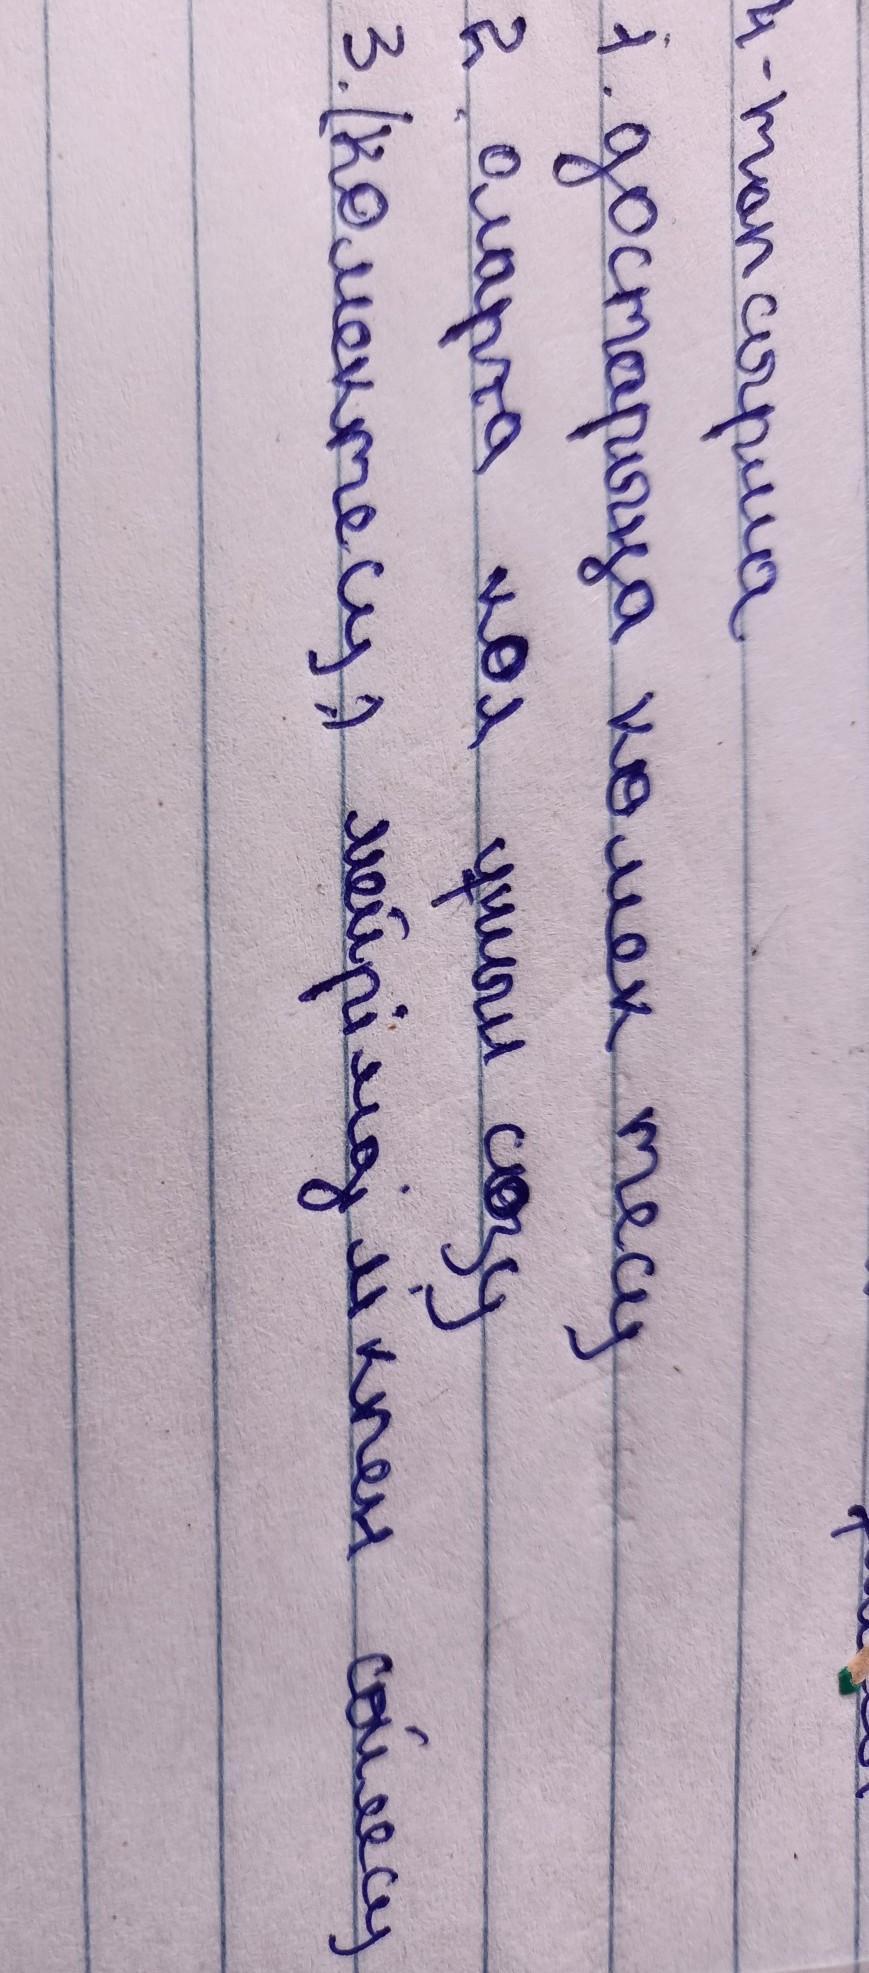 4-тапсырма
1. достарыңа көмек тесу
2. оларға қол ұшын созу
3. (көмектесу) мейрімділікпен сөйлесу